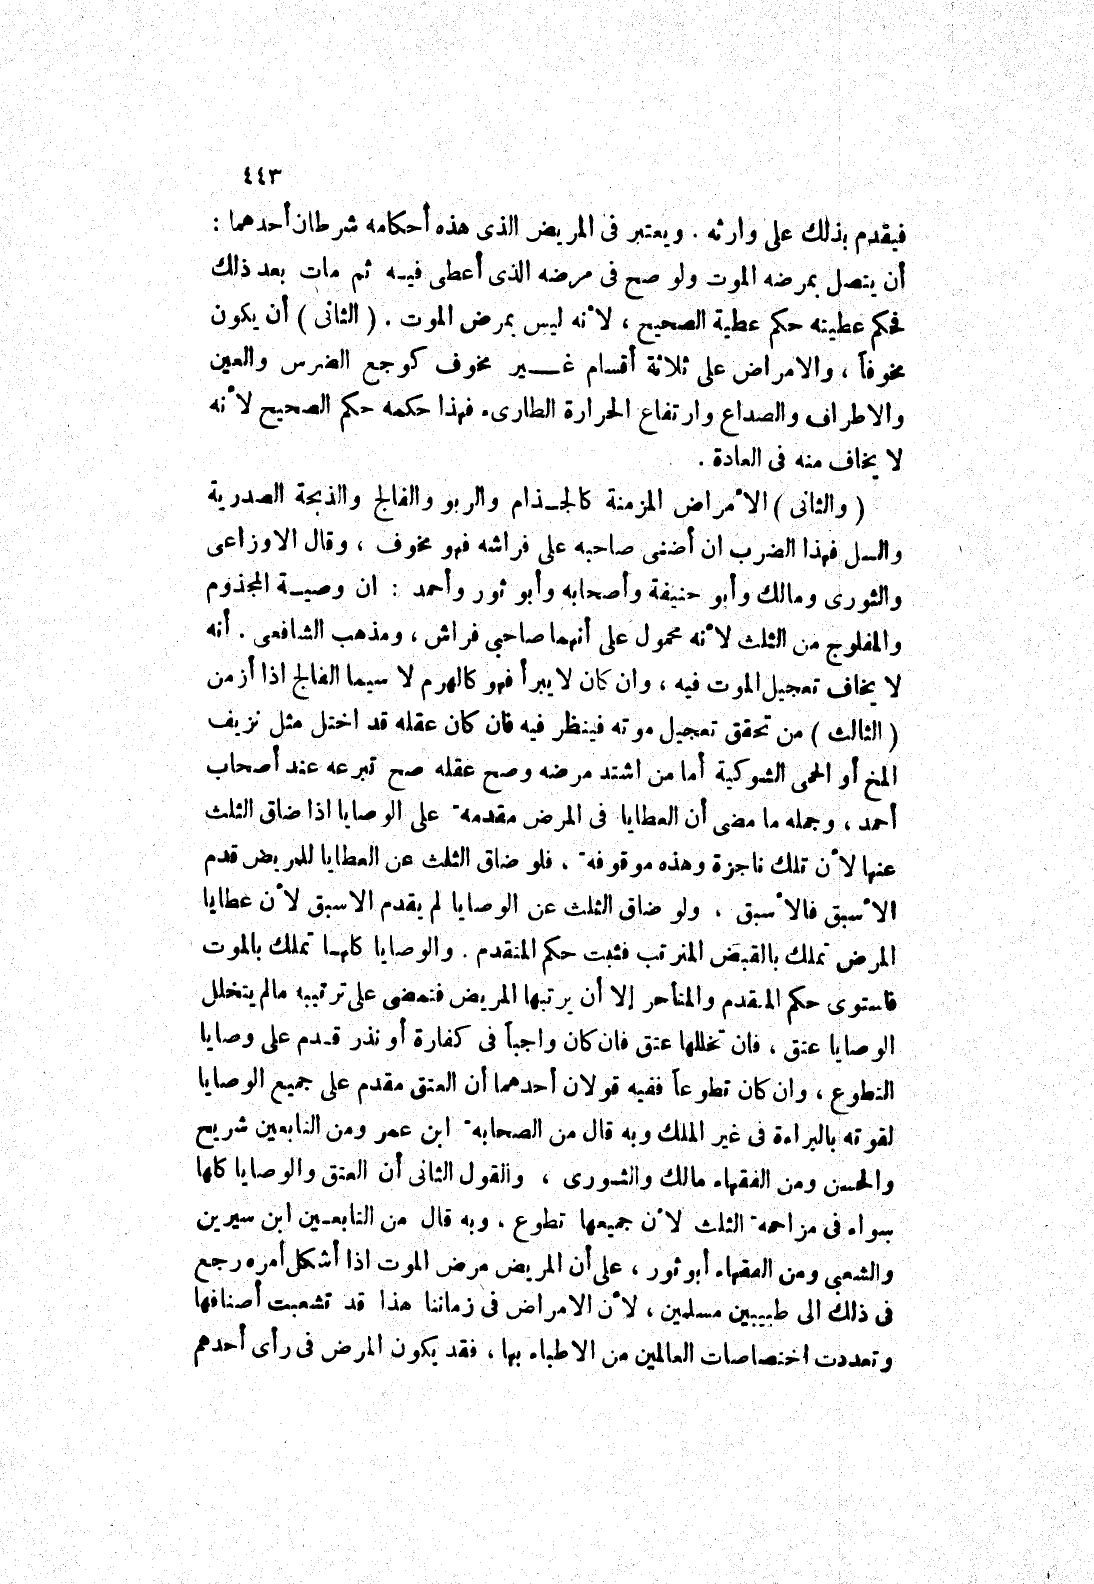 ٤٤٣
فيقدم بذلك على وارثه . ويعتبر فى المريض الذى هذه أحكامه شرطان أحدهما :
أن يتصل بمرضه الموت ولو صح فى مرضه الذى أعطى فيه ثم مات بعد ذلك
فحكم عطيته حكم عطية الصحيح ، لأنه ليس بمرض الموت . ( الثانى ) أن يكون
مخوفاً ، والامراض على ثلاثة أقسام غير مخوف كوجع الضرس والعين
والاطراف والصداع وارتفاع الحرارة الطارىء فهذا حكمه حكم الصحيح لأنه
لا يخاف منه فى العادة .
( والثانى ) الأمراض المزمنة كالجذام والربو والفالج والذبحة الصدرية
والسل فهذا الضرب ان أضنى صاحبه على فراشه فهو مخوف ، وقال الاوزاعى
والثورى ومالك وأبو حنيفة وأصحابه وأبو ثور وأحمد : ان وصية المجذوم
والمفلوج من الثلث لأنه محمول على أنهما صاحبي فراش ، ومذهب الشافعى . أنه
لا يخاف تعجيل الموت فيه ، وان كان لا يبرأ فهو كالهرم لا سيما الفالج اذا أزمن
( الثالث ) من تحقق تعجيل موته فينظر فيه فان كان عقله قد اختل مثل نزيف
المخ أو الحمى الشوكية أما من اشتد مرضه وصح عقله صح تبرعه عند أصحاب
أحمد ، وجمله ما مضى أن العطايا فى المرض مقدمه على الوصايا اذا ضاق الثلث
عنها لأن تلك ناجزة وهذه موقوفة ، فلو ضاق الثلث عن العطايا للمريض قدم
الأسبق فالأسبق ، ولو ضاق الثلث عن الوصايا لم يقدم الاسبق لأن عطايا
المرض تملك بالقبض المترتب فثبت حكم المتقدم . والوصايا كلها تملك بالموت
فاستوى حكم المتقدم والمتأخر إلا أن يرتبها المريض فتمضى على ترتيبه مالم يتخلل
الوصايا عتق ، فان تخللها عتق فان كان واجباً فى كفارة أو نذر قدم على وصايا
التطوع ، وان كان تطوعاً ففيه قولان أحدهما أن العتق مقدم على جميع الوصايا
لقوته بالبراءة فى غير الملك وبه قال من الصحابه ابن عمر ومن التابعين شريح
والحسن ومن الفقهاء مالك والثورى ، والقول الثانى أن العتق والوصايا كلها
سواء فى مزاحمة الثلث لأن جميعها تطوع ، وبه قال من التابعين ابن سيرين
والشعبى ومن الفقهاء أبو ثور ، على أن المريض مرض الموت اذا أشكل أمره رجع
فى ذلك الى طبيبين مسلمين ، لأن الامراض فى زماننا هذا قد تشعبت أصنافها
وتعددت اختصاصات العالمين من الاطباء بها ، فقد يكون المرض فى رأى أحدهم